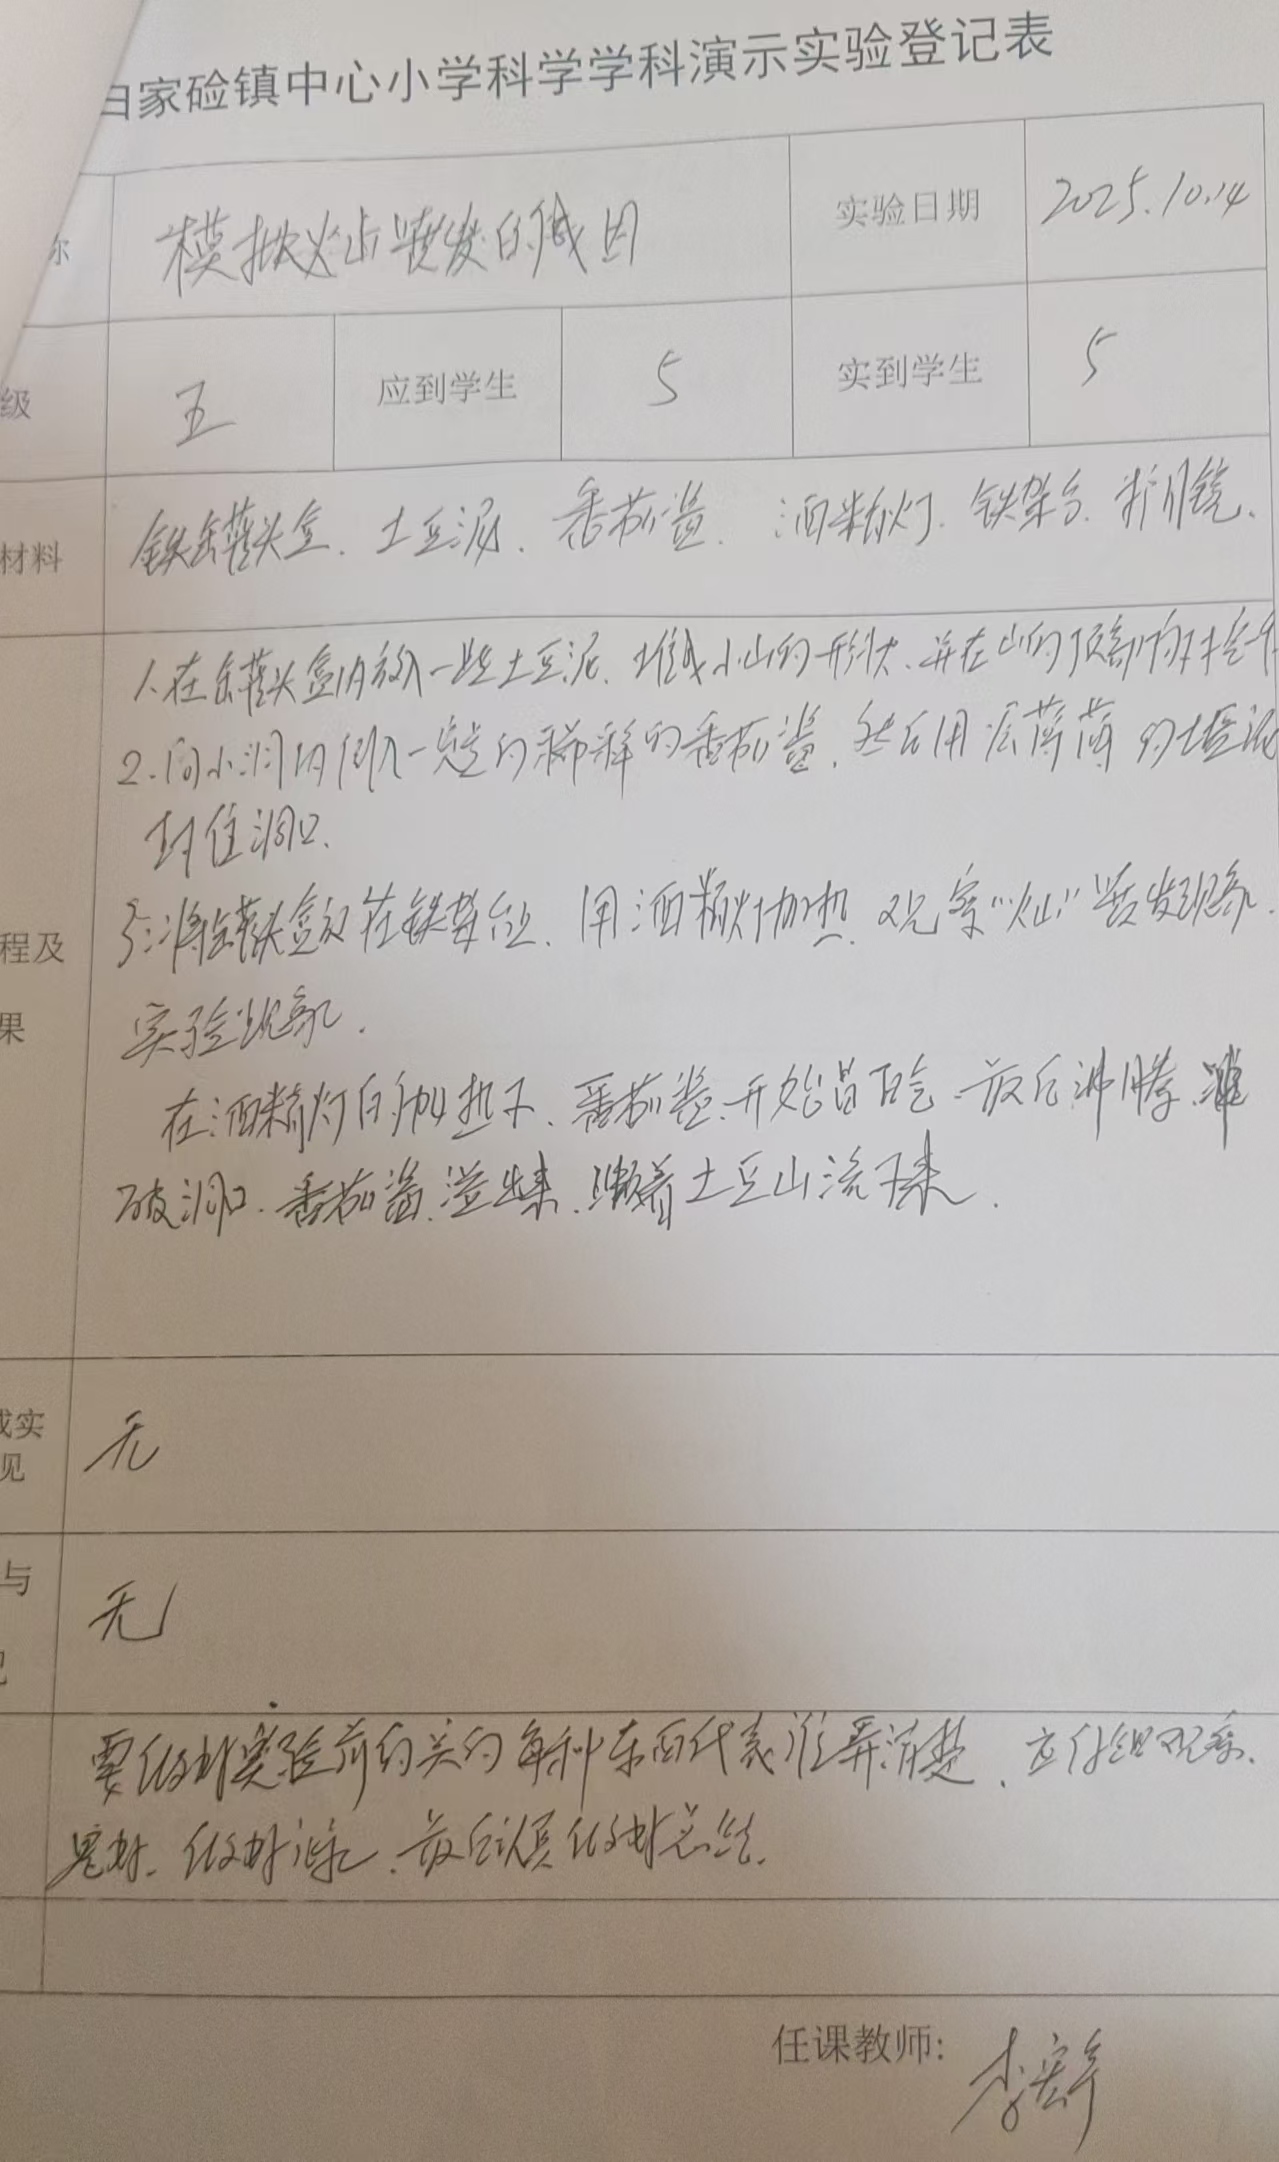 家硷镇中心小学科学学科演示实验登记表
模拟火山喷发的成因 实验日期 2025.10.14
级 五 应到学生 5 实到学生 5
材料 铁罐头盒、土豆泥、番茄酱、酒精灯、铁架台、护目镜、
1、在罐头盒内放入一些土豆泥、堆成小山的形状、并在山的顶部
2、向小洞内倒入一定的稀释的番茄酱、然后用层薄薄的
封住洞口.
3、将罐头盒放在铁架台上、用酒精灯加热、观察"火山"喷发现象.
程及
果
实验现象.
在酒精灯的加热下、番茄酱开始冒百气、最后沸腾、冲
破洞口、番茄酱溢出来、顺着土豆山流下来.
或实
见
无
与
无
要做好实验前的 每种东西代表谁弄清楚、观察、
做好记录、最后认真做好总结.
任课教师: